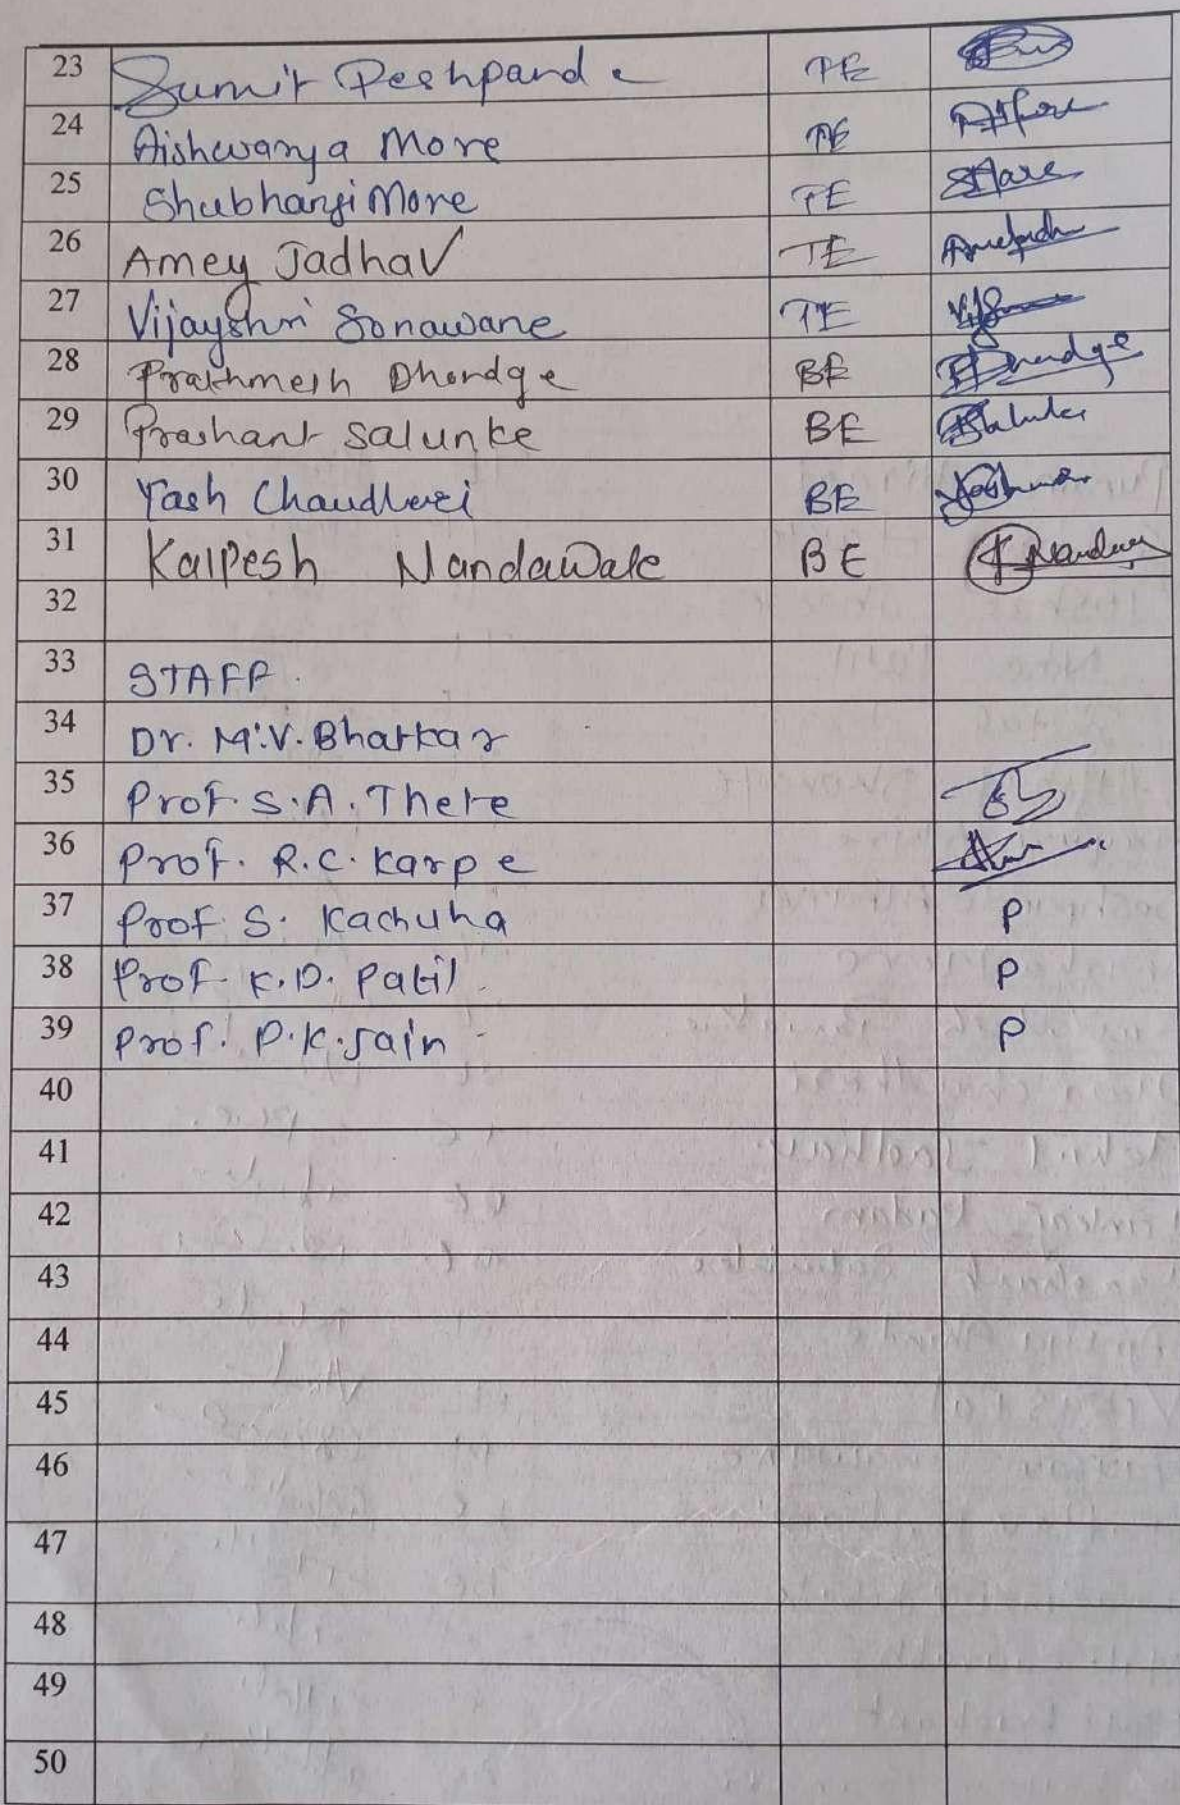 23 Sumit Deshpande TE
24 Aishwarya More TE
25 Shubhangi More TE
26 Amey Jadhav TE
27 Vijayshri Sonawane TE
28 Prathmesh Dhondge BE
29 Prashant Salunke BE
30 Yash Chaudhari BE
31 Kalpesh Nandawate BE
32
33 STAFF.
34 Dr. M.V. Bhatkar
35 Prof. S.A. Thete
36 Prof. R.C. Karpe
37 Prof. S. Kachuha P
38 Prof. K.D. Patil. P
39 Prof. P.K. Jain P
40
41
42
43
44
45
46
47
48
49
50